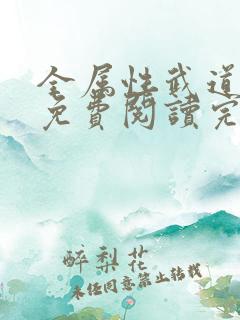 全属性武道
免費閱讀完
醉梨花
未经同意禁止转载